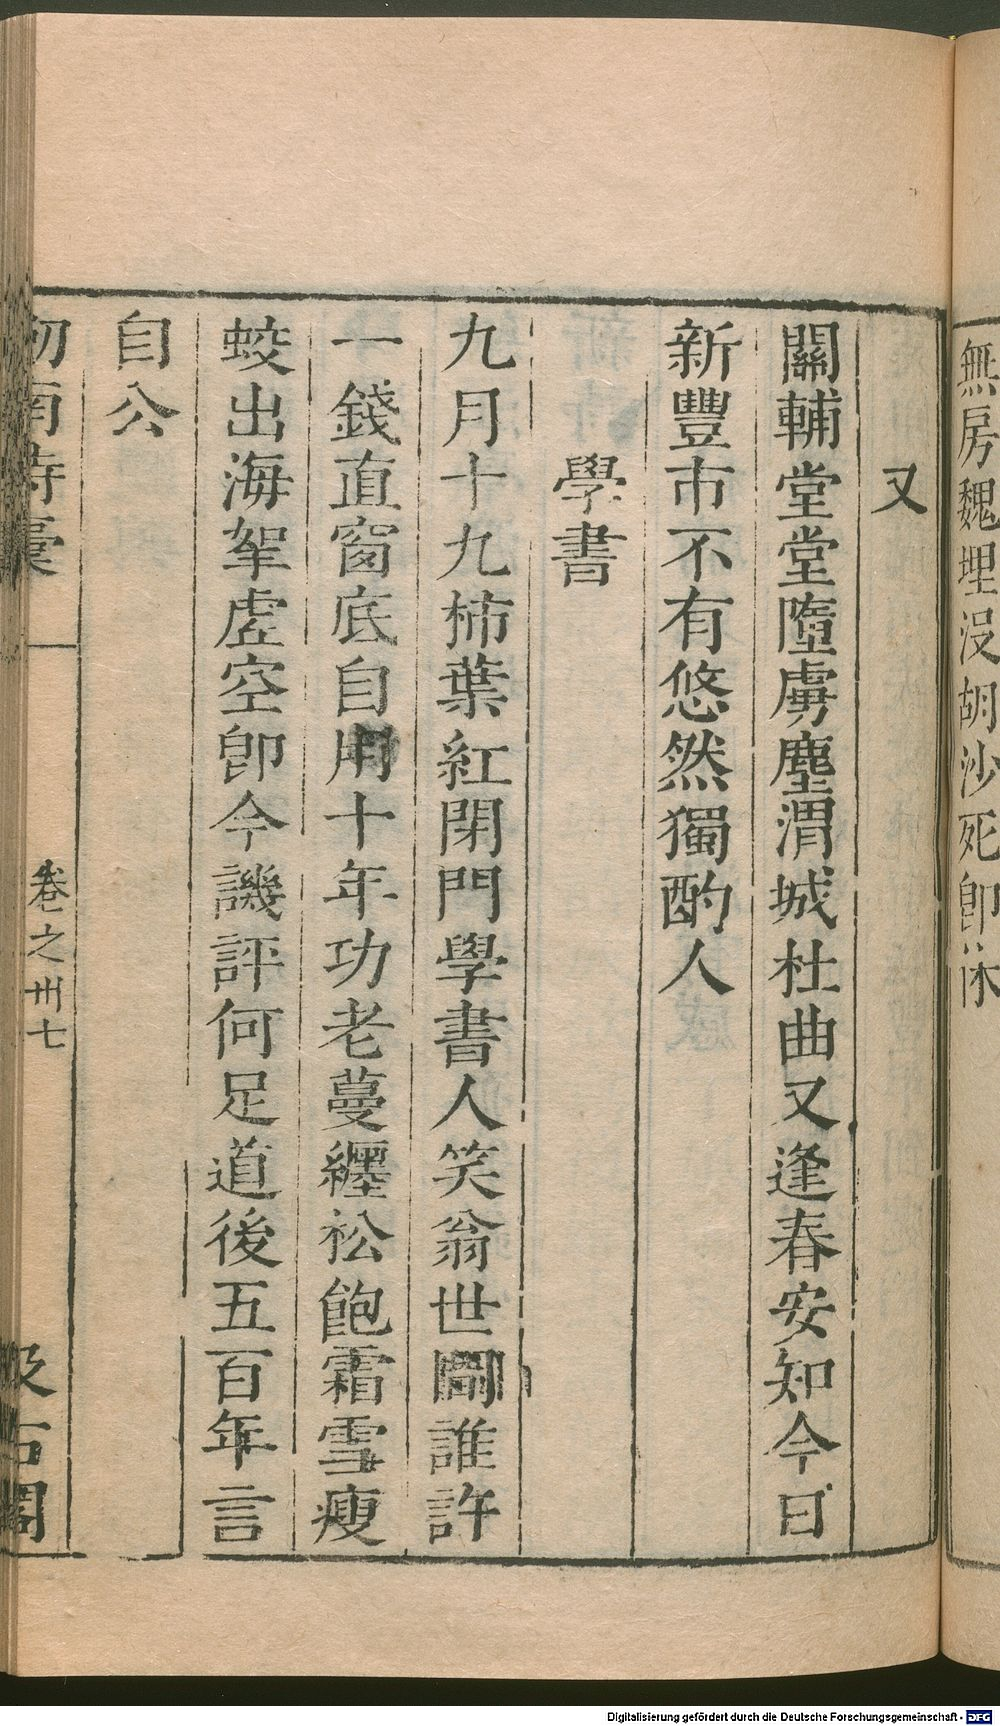 無房魏埋没胡沙死即休
又
關輔堂堂墮虜塵渭城杜曲又逢春安知今日
新豐市不有悠然獨酌人
學書
九月十九柿葉紅閉門學書人笑翁世間誰許
一錢直窗底自用十年功老蔓纏松飽霜雪瘦
蛟出海挐虛空即今譏評何足道後五百年言
自公
劒南詩稾
卷之卅七
汲古閣
Digitalisierung gefördert durch die Deutsche Forschungsgemeinschaft - DFG